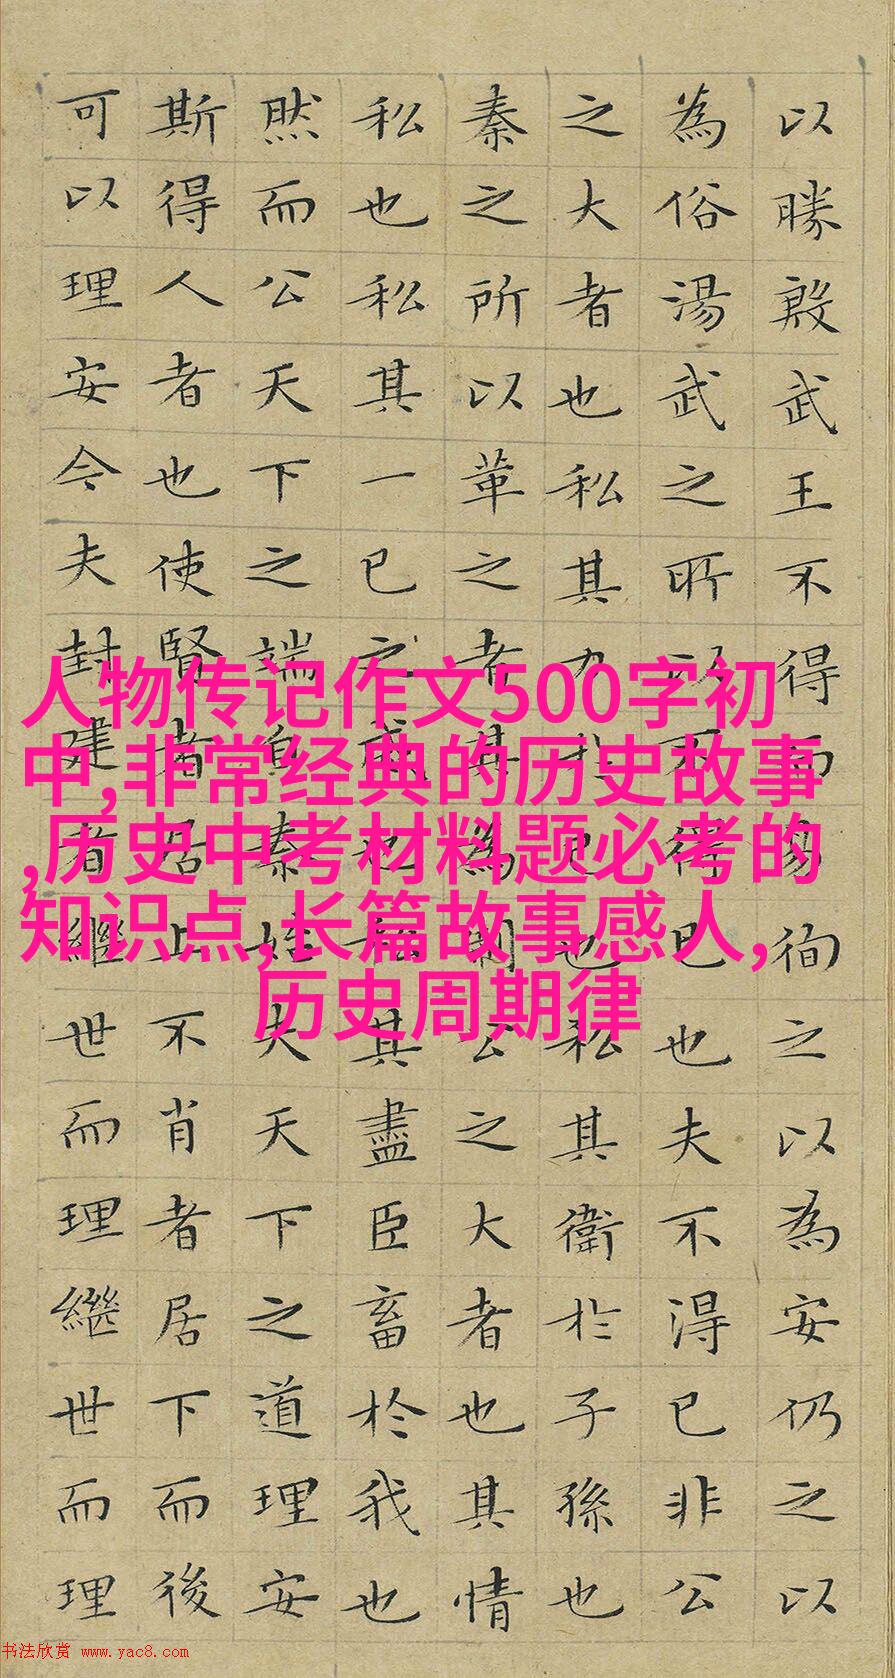 以勝殷武王不得而易徇之以為安仍之以
為俗湯武之所以不得已也夫不得已非公
之大者也私其力於已也私其衛於子孫也
秦之所以革之者其為制公之大者也其情
私也私其一已之威也私其盡臣畜於我也
然而公天下之端自秦始夫天下之道理安
斯得人者也使賢者居上不肖者居下而後
可以理安今夫封建者繼世而理繼世而理
人物传记作文500字初
中,非常经典的历史故事
,历史中考材料题必考的
知识点,长篇故事感人,
历史周期律
书法欣赏 www.yac8.com